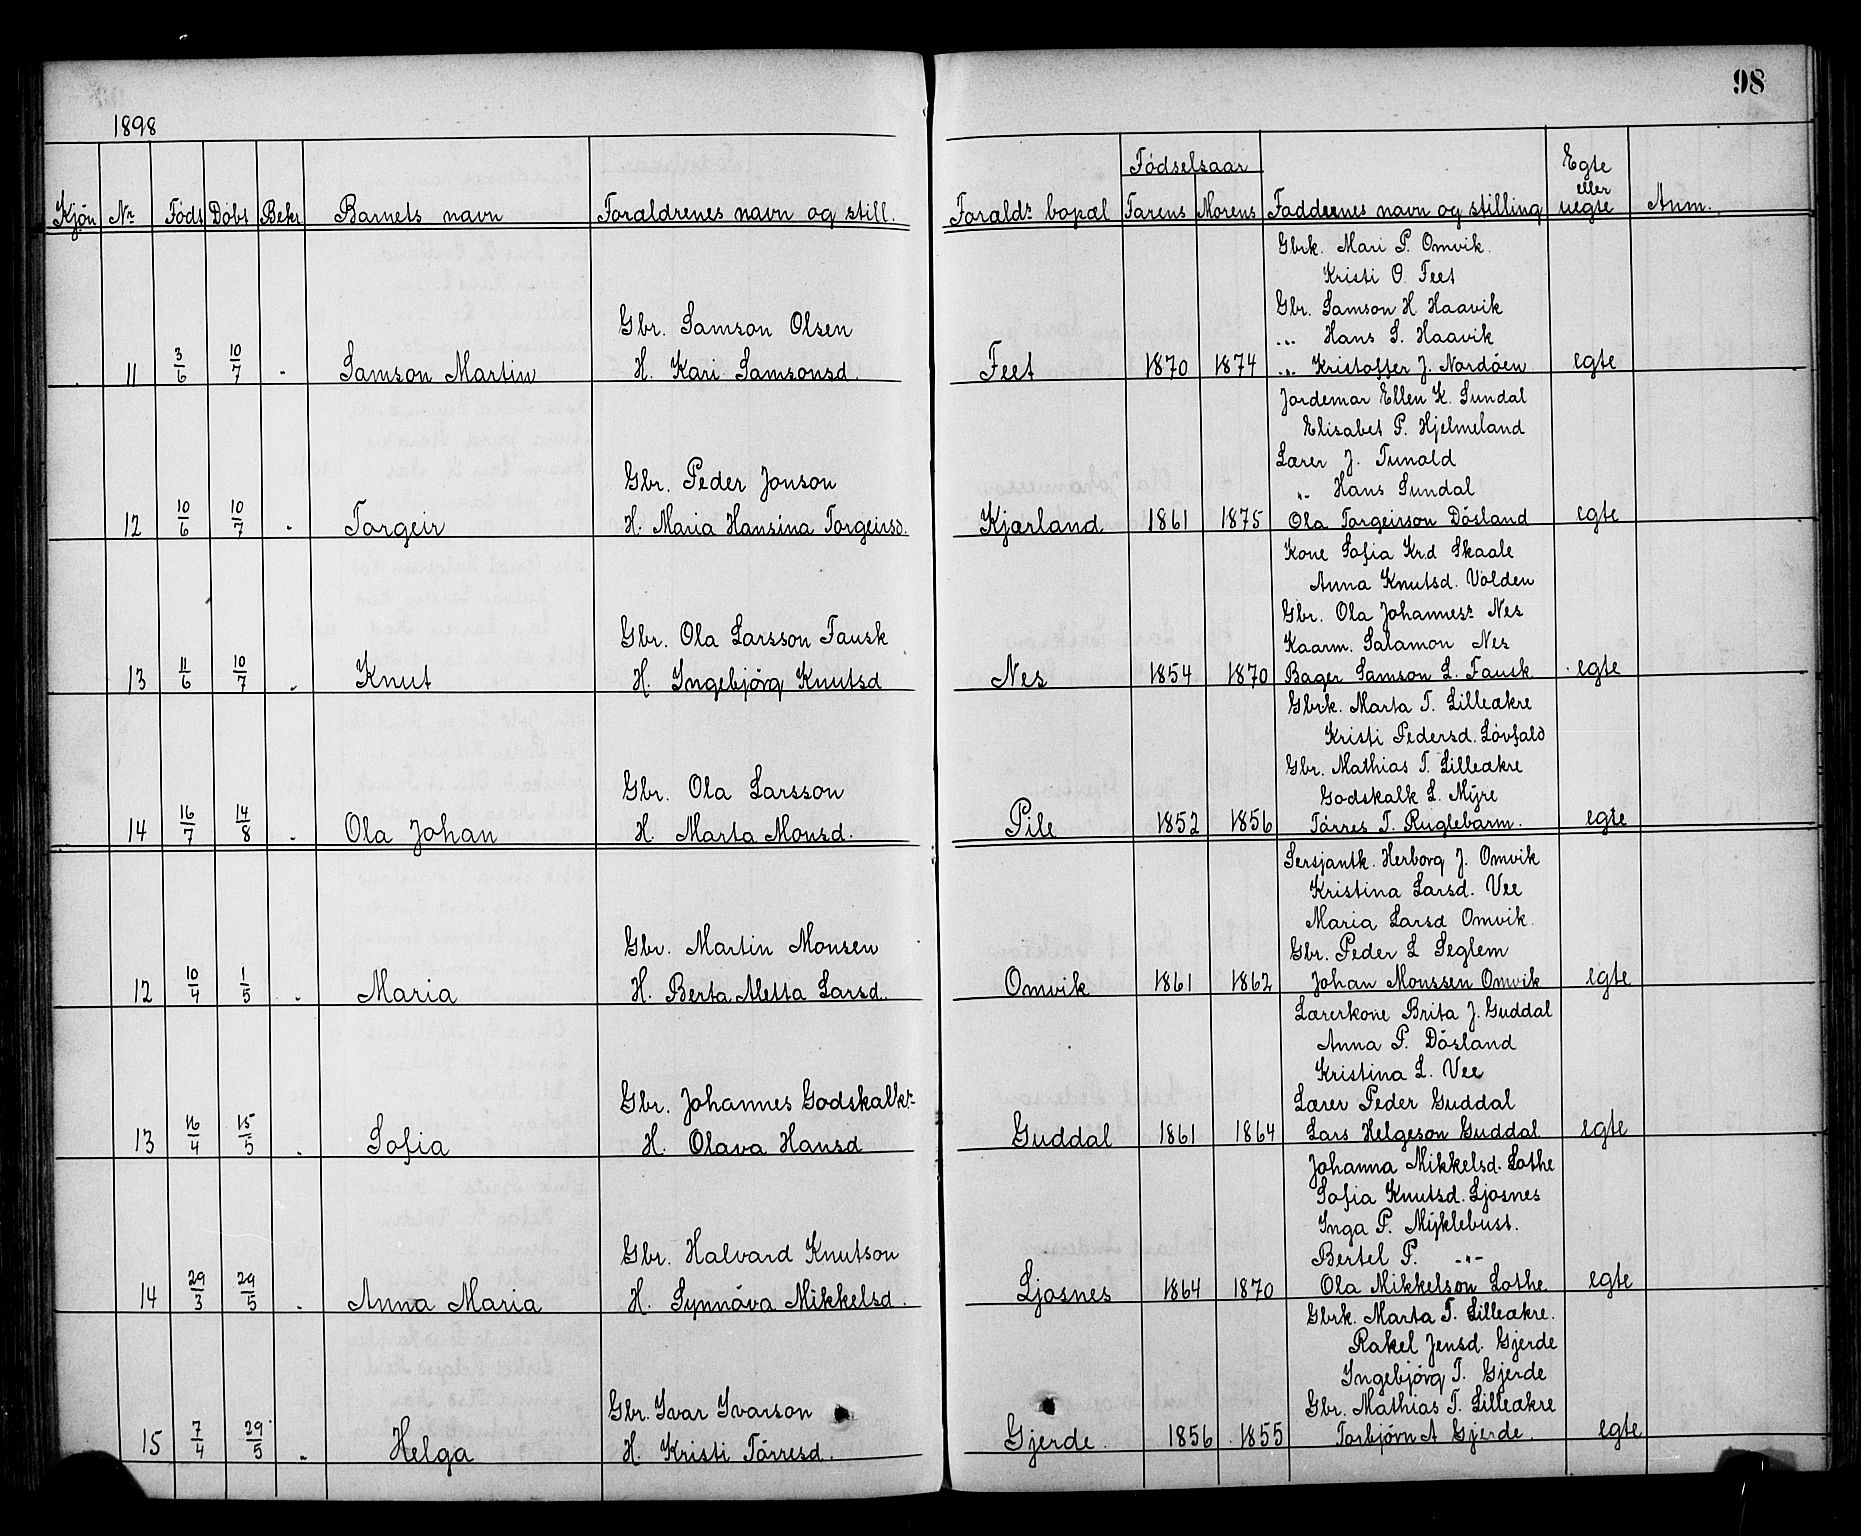 98
1898
Kjøn Nr. Født Døbt Bekr Barnets navn Foraldrenes navn og still. Forald: bopæl Fødselsaar Farens Morens Faddernes navn og stilling Egte eller uegte Anm.
Gbrk. Mari P. Omvik.
Kristi O. Feet
Gbr. Samson H Haavik
Gbr. Samson Olsen
„ Hans S. Haavik
11 3/6 10/7 Samson Martin H. Kari Samsonsd. Feet 1870 1874 „ Kristoffer J. Nordöen egte
Jordemor Ellen K. Sundal
Elisabet P. Hjelmeland
Lærer J. Tunold
Gbr. Peder Jonson
„ Hans Sundal
12 10/6 10/7 Torgeir H. Maria Hansina Torgeirsd. Kjærland 1861 1875 Ola Torgeirson Dösland egte
Kone Sofia Kr.d Skaale
Anna Knutsd. Volden
Gbr. Ola Johannes: Nes
Gbr. Ola Larsson Fausk
Kaarm. Salamon Nes
13 11/6 10/7 Knut H. Ingebjörg Knutsd Nes 1854 1870 Bager Samson L. Fausk egte
Gbrk. Marta T. Lilleakre
Kristi Pedersd. Lövfald
Gbr. Mathias T. Lilleakre
Gbr. Ola Larsson
Godskalk L. Myre
14 16/7 14/8 Ola Johan H. Marta Monsd. Pile 1852 1856 Törres T. Ruglebarm. egte
Sersjantk. Herborg J. Omvik
Kristina Larsd. Vee
Maria Larsd Omvik.
Gbr. Martin Monsen
Gbr. Peder L Seglem
12 10/4 1/5 Maria H. Berta Metta Larsd. Omvik 1861 1862 Johan Monssen Omvik egte
Lærerkone Brita J. Guddal
Anna P. Dösland
Kristina L. Vee
Gbr. Johannes Godskalks:
Lærer Peder Guddal
13 16/4 15/5 Sofia H. Olava Hansd Guddal 1861 1864 Lars Helgeson Guddal egte
Johanna Mikkelsd. Lothe
Sofia Knutsd. Ljosnes
Inga P. Myklebust.
Gbr. Halvard Knutson
Bertel P. -„-
14 29/3 29/5 Anna Maria H. Synnöva Mikkelsd. Ljosnes 1864 1870 Ola Mikkelson Lothe egte
Gbrk. Marta T. Lilleakre.
Rakel Jensd. Gjerde
Ingebjörg T. Gjerde
Gbr. Ivar Ivarson
Gbr. Mathias T. Lilleakre
15 7/4 29/5 Helga H. Kristi Törresd. Gjerde. 1856 1855 Torbjörn A Gjerde. egte